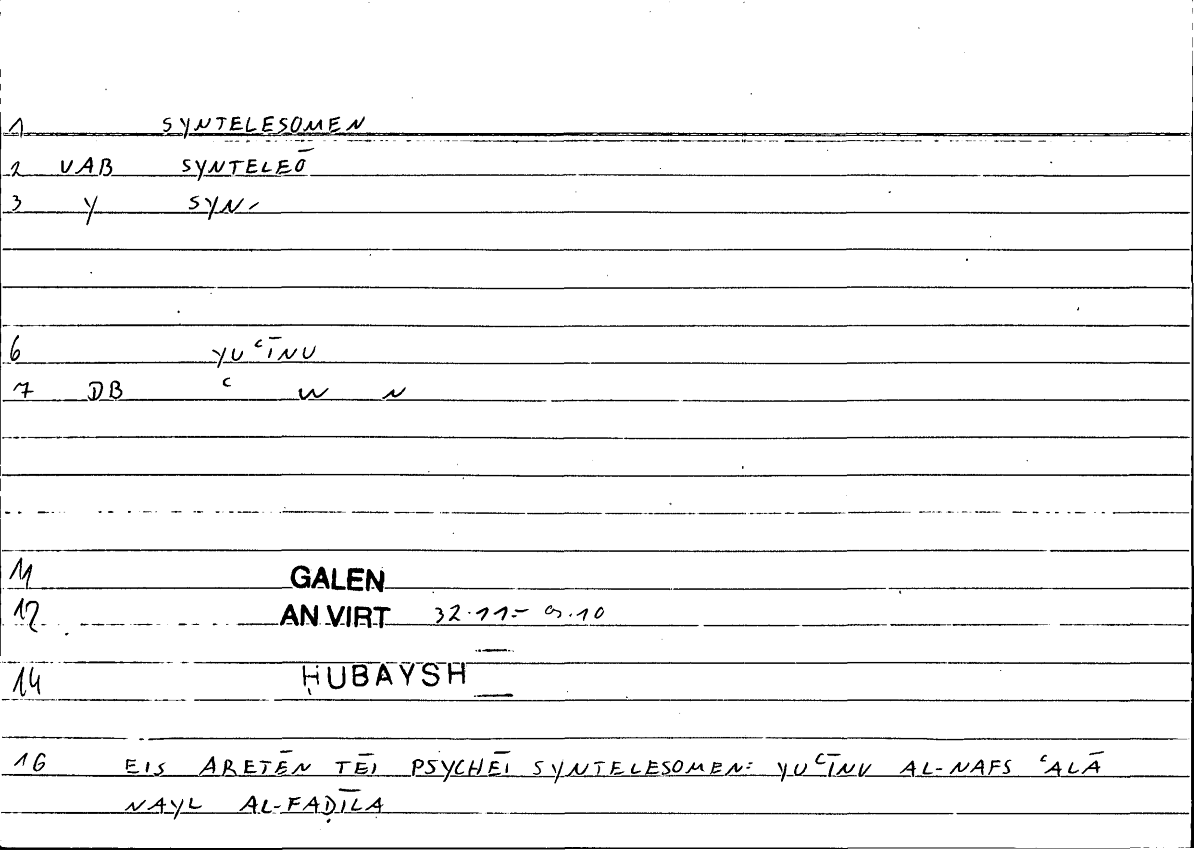 1 SYNTELESOMEN
2 VAB SYNTELEŌ
3 Y SYN-
6 YUʿĪNU
7 DB ʿ W N
11 GALEN
12 AN VIRT 32.11= 9.10
14 ḤUBAYSH
16 EIS ARETĒN TĒI PSYCHĒI SYNTELESOMEN: YUʿĪNU AL-NAFS ʿALĀ
NAYL AL-FAḌĪLA